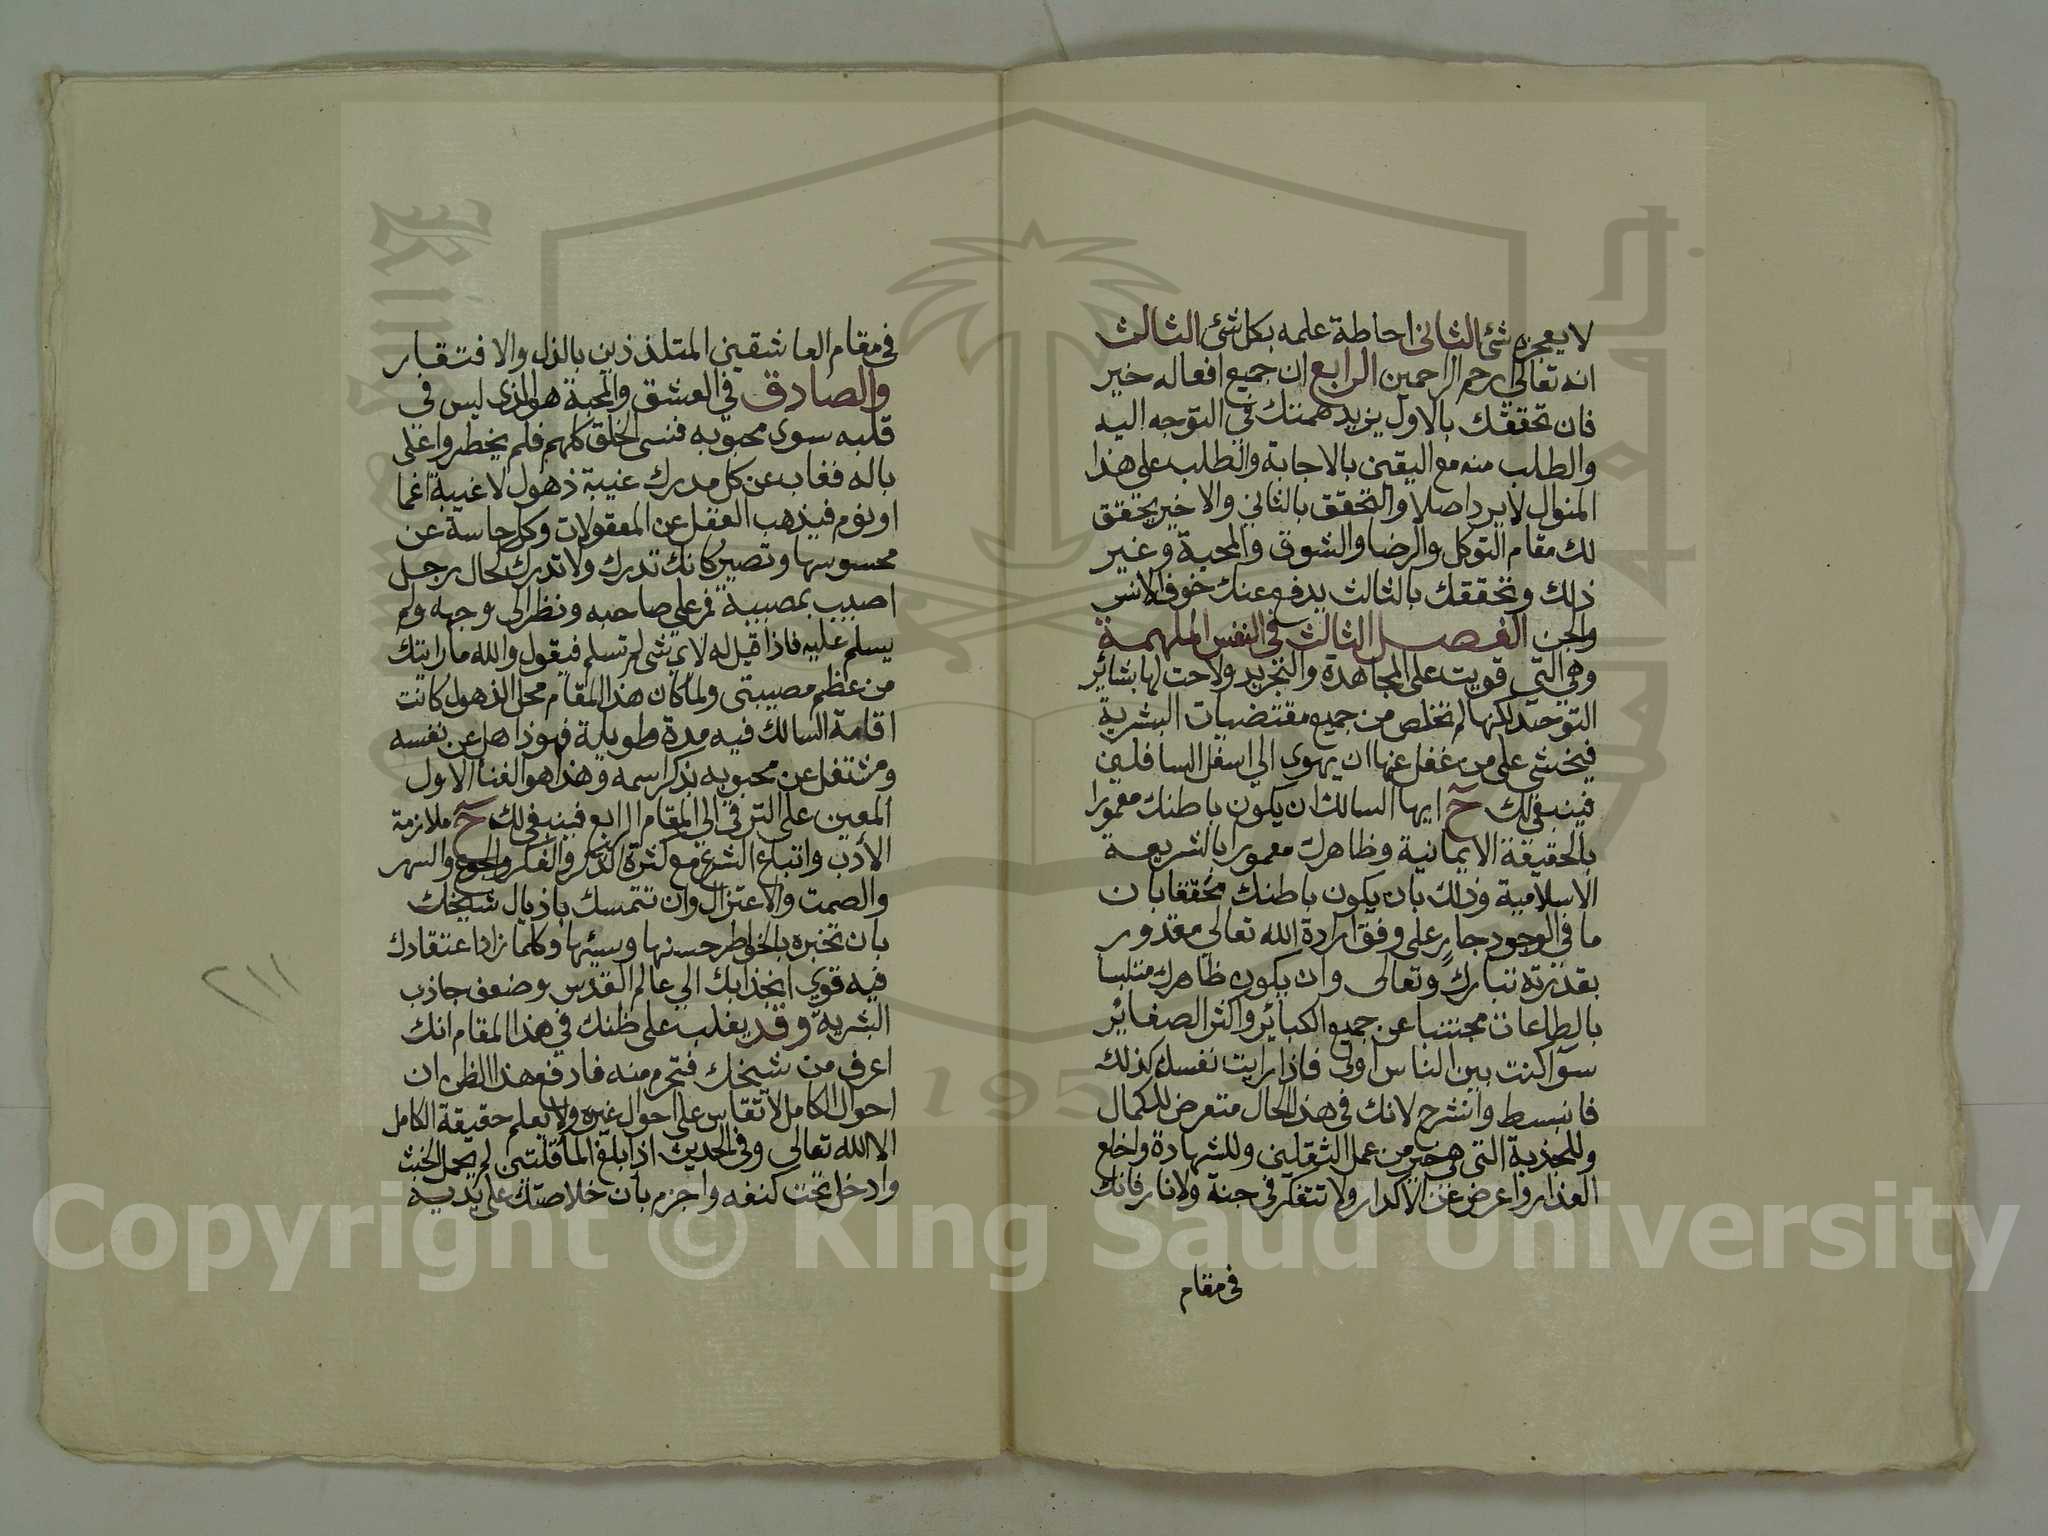 لا يعجزه شئ الثاني احاطة علمه بكل شئ الثالث
انه تعالى ارحم الراحمين الرابع ان جميع افعاله خير
فان تحققك بالاول يزيد همتك في التوجه اليه
والطلب منه مع اليقين بالاجابة والطلب على هذا
المنوال لا يرد اصلا والتحقق بالثاني والاخير يحقق
لك مقام التوكل والرضا والشوق والمحبة وغير
ذلك وتحققك بالثالث يدفع عنك خوف الانس
والجن الفصل الثالث في النفس الملهمة
وهي التي قويت على المجاهدة والتجريد ولاحت لها بشائر
التوحيد لكنها لم تخلص من جميع مقتضيات البشرية
فيخشى على من غفل عنها ان يهوى الى اسفل السافلين
فينبغي لك ح ايها السالك ان يكون باطنك مغمورا
بالحقيقة الايمانية وظاهرك معمورا بالشريعة
الاسلامية وذلك بان يكون باطنك محققا بان
ما في الوجود جار على وفق ارادة الله تعالى مقدور
بقدرته تبارك وتعالى وان يكون ظاهرك متلبسا
بالطاعات مجتنبا عن جميع الكبائر واكثر الصغائر
سوآ كنت بين الناس اولى فاذا رايت نفسك كذلك
فانبسط وانشرح لانك في هذا الحال متعرض للكمال
وللجذبة التي هي خير من عمل الثقلين وللشهادة واخلع
العذار واعرض عن الاكدار ولا تتفكر في جنة ولا نار فانك
في مقام
في مقام العاشقين المتلذذين بالذل والافتقار
والصادق في العشق والمحبة هو الذي ليس في
قلبه سوى محبوبه فنسى الخلق كلهم فلم يخطروا على
باله فغاب عن كل مدرك غيبة ذهول لا غيبة اغما
او نوم فيذهب العقل عن المعقولات وكل حاسة عن
محسوسها وتصير كانك تدرك ولا تدرك كحال رجل
اصيب بمصيبة فمر على صاحبه ونظر الى وجهه ولم
يسلم عليه فاذا قيل له لاي شى لم تسلم فيقول والله ما رايتك
من عظم مصيبتى ولما كان هذا المقام محل الذهول كانت
اقامة السالك فيه مدة طويلة فهو ذاهل عن نفسه
ومشتغل عن محبوبه بذكر اسمه وهذا هو الفنا الاول
المعين على الترقي الى المقام الرابع فينبغي لك ح ملازمة
الأدب واتباع الشرع مع كثرة الذكر والفكر والجوع والسهر
والصمت والاعتزال وان تتمسك باذيال شيخك
بان تخبره بالخواطر حسنها وسيئها وكلما زاد اعتقادك
فيه قوي انجذابك الى عالم القدس وضعف جاذب
البشرية وقد يغلب على ظنك في هذا المقام انك
اعرف من شيخك فتحرم منه فادفع هذا الظن ان
احوال الكامل لا تقاس على احوال غيره ولا يعلم حقيقة الكامل
الا الله تعالى وفي الحديث اذا بلغ الما قلتين لم يحمل الخبث
وادخل تحت كنفه واجزم بان خلاصك على يديه
٢١١
Copyright © King Saud University